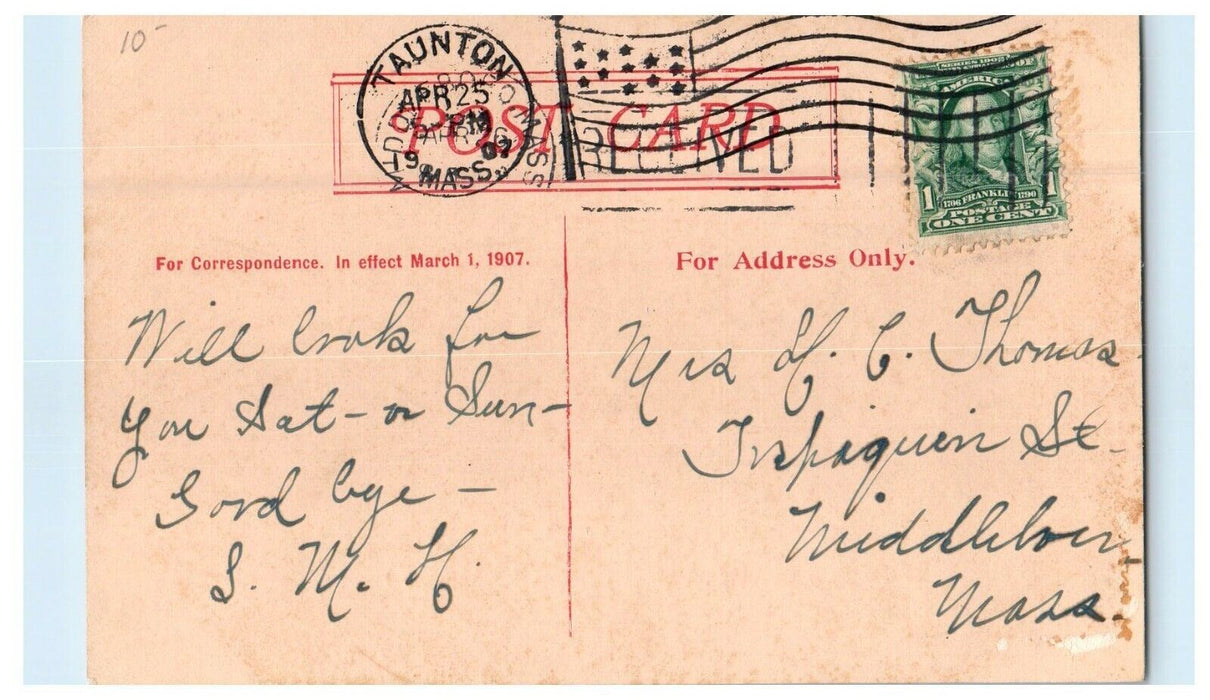 10-
TAUNTON
APR 25
PM
19 07
MASS.
RECEIVED
POST CARD
SERIES 1902
AMERICA
1 1
1706 FRANKLIN 1790
POSTAGE
ONE CENT
For Correspondence. In effect March 1, 1907.
Will look for
you Sat - or Sun -
Good bye -
S. M. H.
For Address Only.
Mrs H. C. Thomas
Inspaquin St.
Middleboro
Mass.